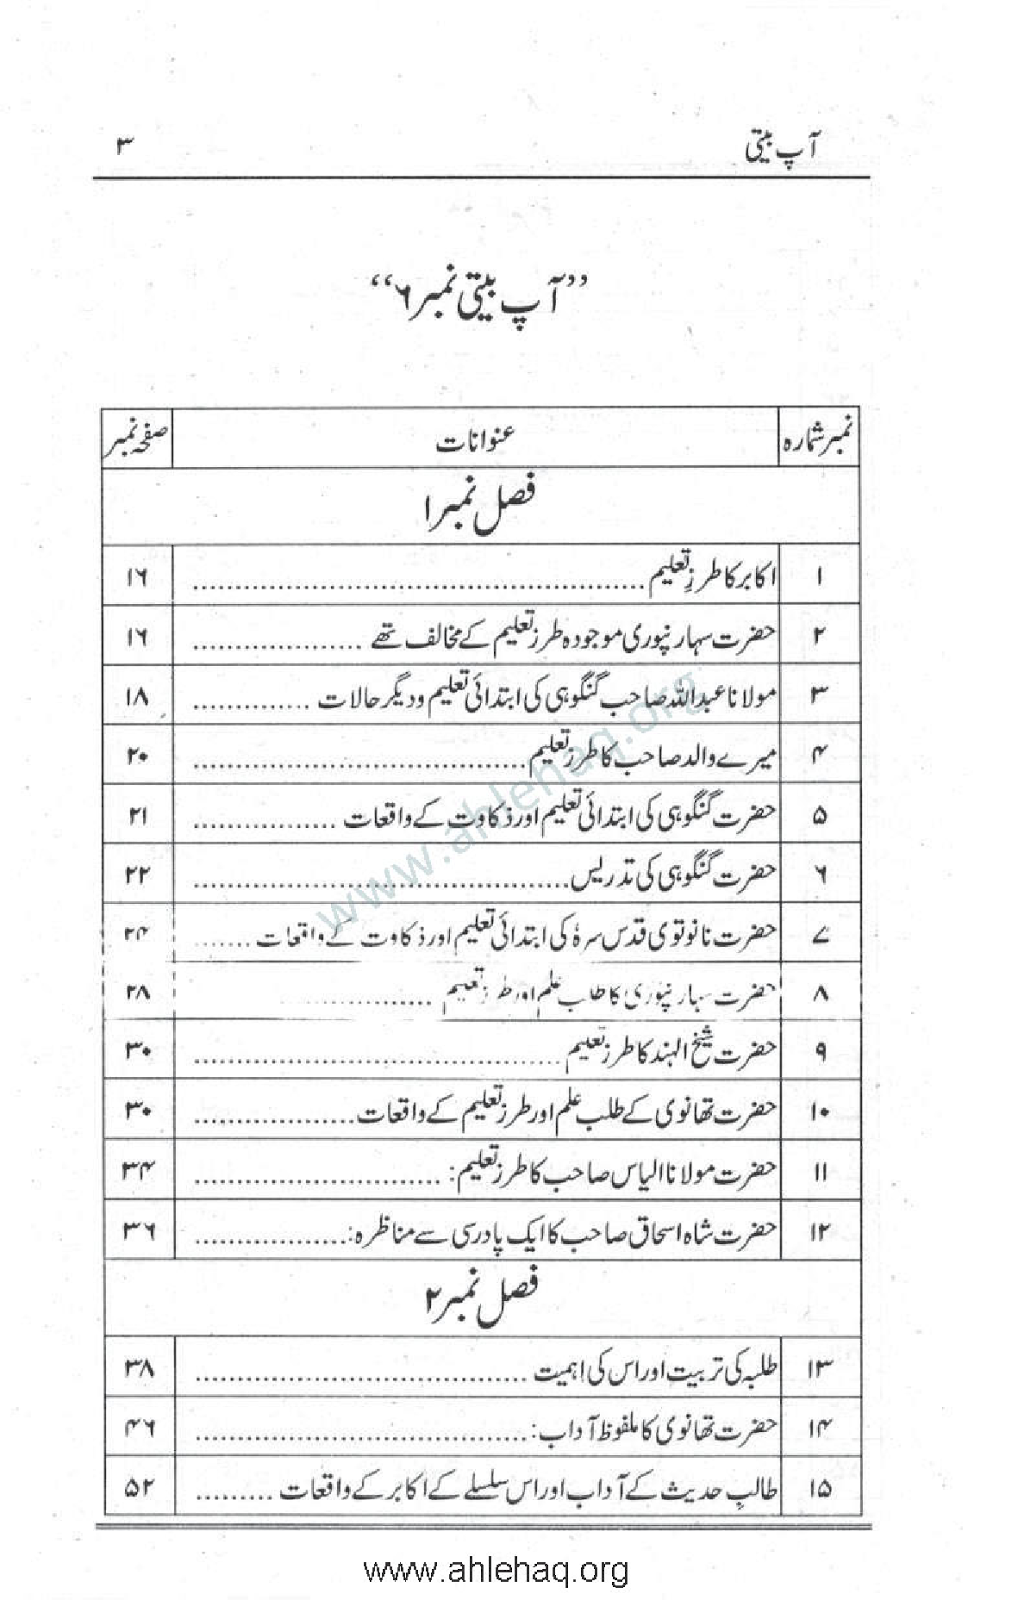 آپ بیتی ۳
”آپ بیتی نمبر ۶“
نمبر شمارہ عنوانات صفحہ نمبر
فصل نمبر ۱
۱ اکابر کا طرزِ تعلیم ........ ۱۶
۲ حضرت سہارنپوری موجودہ طرز تعلیم کے مخالف تھے ........ ۱۶
۳ مولانا عبداللہ صاحب گنگوہی کی ابتدائی تعلیم و دیگر حالات ........ ۱۸
۴ میرے والد صاحب کا طرز تعلیم ........ ۲۰
۵ حضرت گنگوہی کی ابتدائی تعلیم اور ذکاوت کے واقعات ........ ۲۱
۶ حضرت گنگوہی کی تدریس ........ ۲۲
۷ حضرت نانوتوی قدس سرہٗ کی ابتدائی تعلیم اور ذکاوت کے واقعات ........ ۲۴
۸ حضرت سہارنپوری کا طلب علم اور طرز تعلیم ........ ۲۸
۹ حضرت شیخ الہند کا طرز تعلیم ........ ۳۰
۱۰ حضرت تھانوی کے طلب علم اور طرز تعلیم کے واقعات ........ ۳۰
۱۱ حضرت مولانا الیاس صاحب کا طرز تعلیم: ........ ۳۴
۱۲ حضرت شاہ اسحاق صاحب کا ایک پادری سے مناظرہ: ........ ۳۶
فصل نمبر ۲
۱۳ طلبہ کی تربیت اور اس کی اہمیت ........ ۳۸
۱۴ حضرت تھانوی کا ملفوظ آداب: ........ ۴۶
۱۵ طالبِ حدیث کے آداب اور اس سلسلے کے اکابر کے واقعات ........ ۵۲
www.ahlehaq.org
www.ahlehaq.org